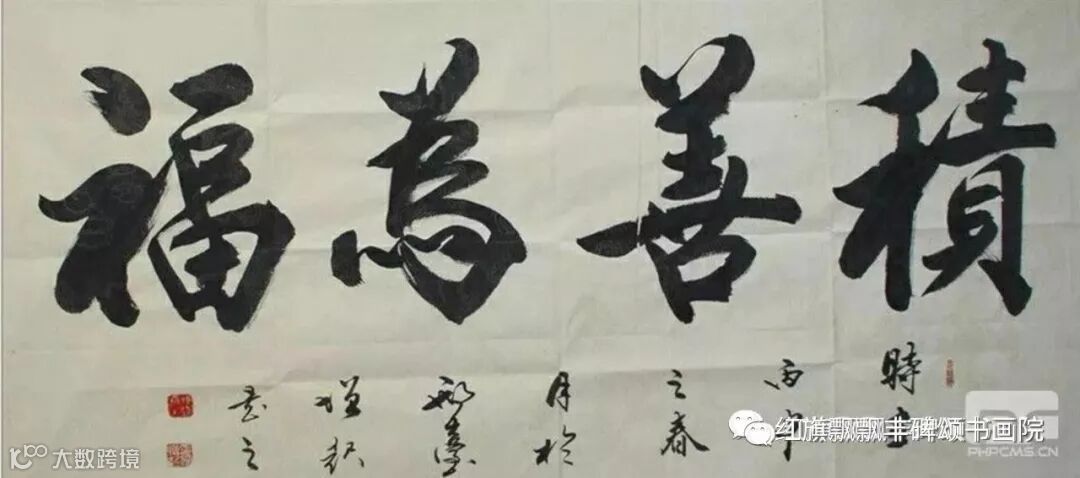 積善為福
時在
丙申
之春
月於
邢臺
增
書之
红旗飘飘丰碑颂书画院
大数跨境
PHPCMS.CN